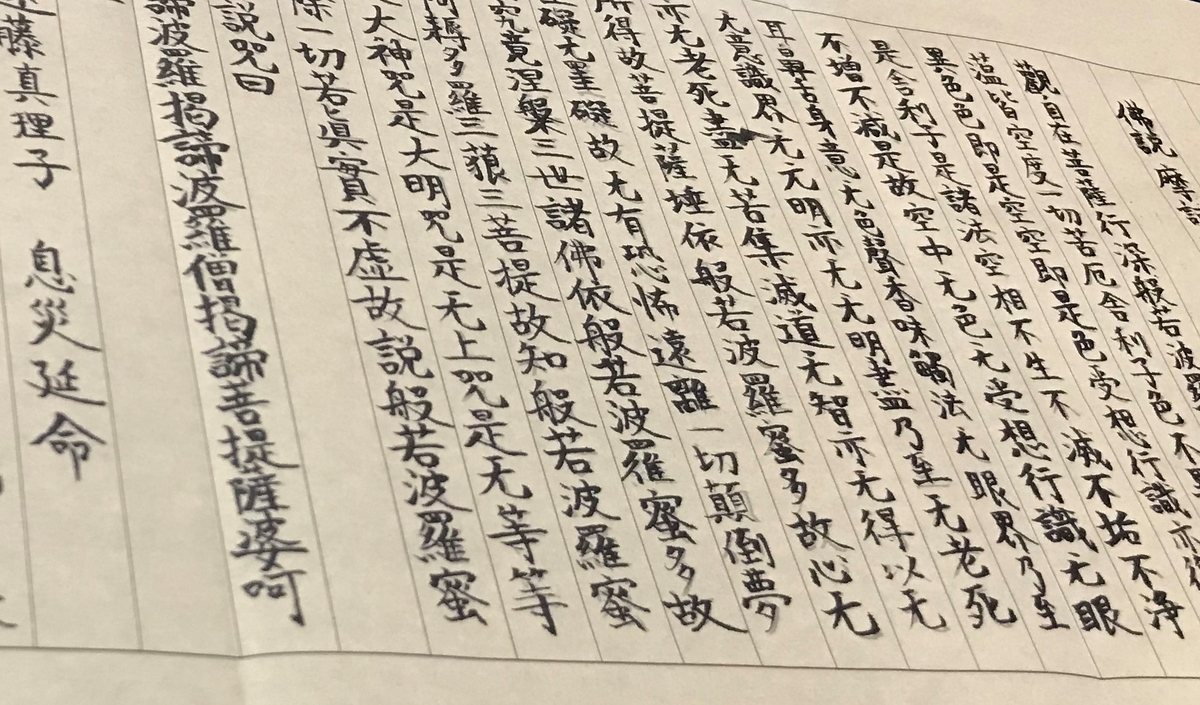 佛説摩
觀自在菩薩行深般若波羅
蕰皆空度一切苦厄舍利子色不
異色色即是空空即是色受想行識亦復
是舍利子是諸法空相不生不滅不垢不淨
不增不減是故空中无色无受想行識无眼
耳鼻舌身意无色聲香味觸法无眼界乃至
无意識界无无明亦无无明盡乃至无老死
亦无老死盡无苦集滅道无智亦无得以无
所得故菩提薩埵依般若波羅蜜多故心无
罣礙无罣礙故无有恐怖遠離一切顛倒夢
究竟涅槃三世諸佛依般若波羅蜜多故
阿耨多羅三藐三菩提故知般若波羅蜜
大神咒是大明咒是无上咒是无等等
除一切苦真實不虚故説般若波羅蜜
説咒曰
諦波羅揭諦波羅僧揭諦菩提薩婆呵
藤真理子 息災延命